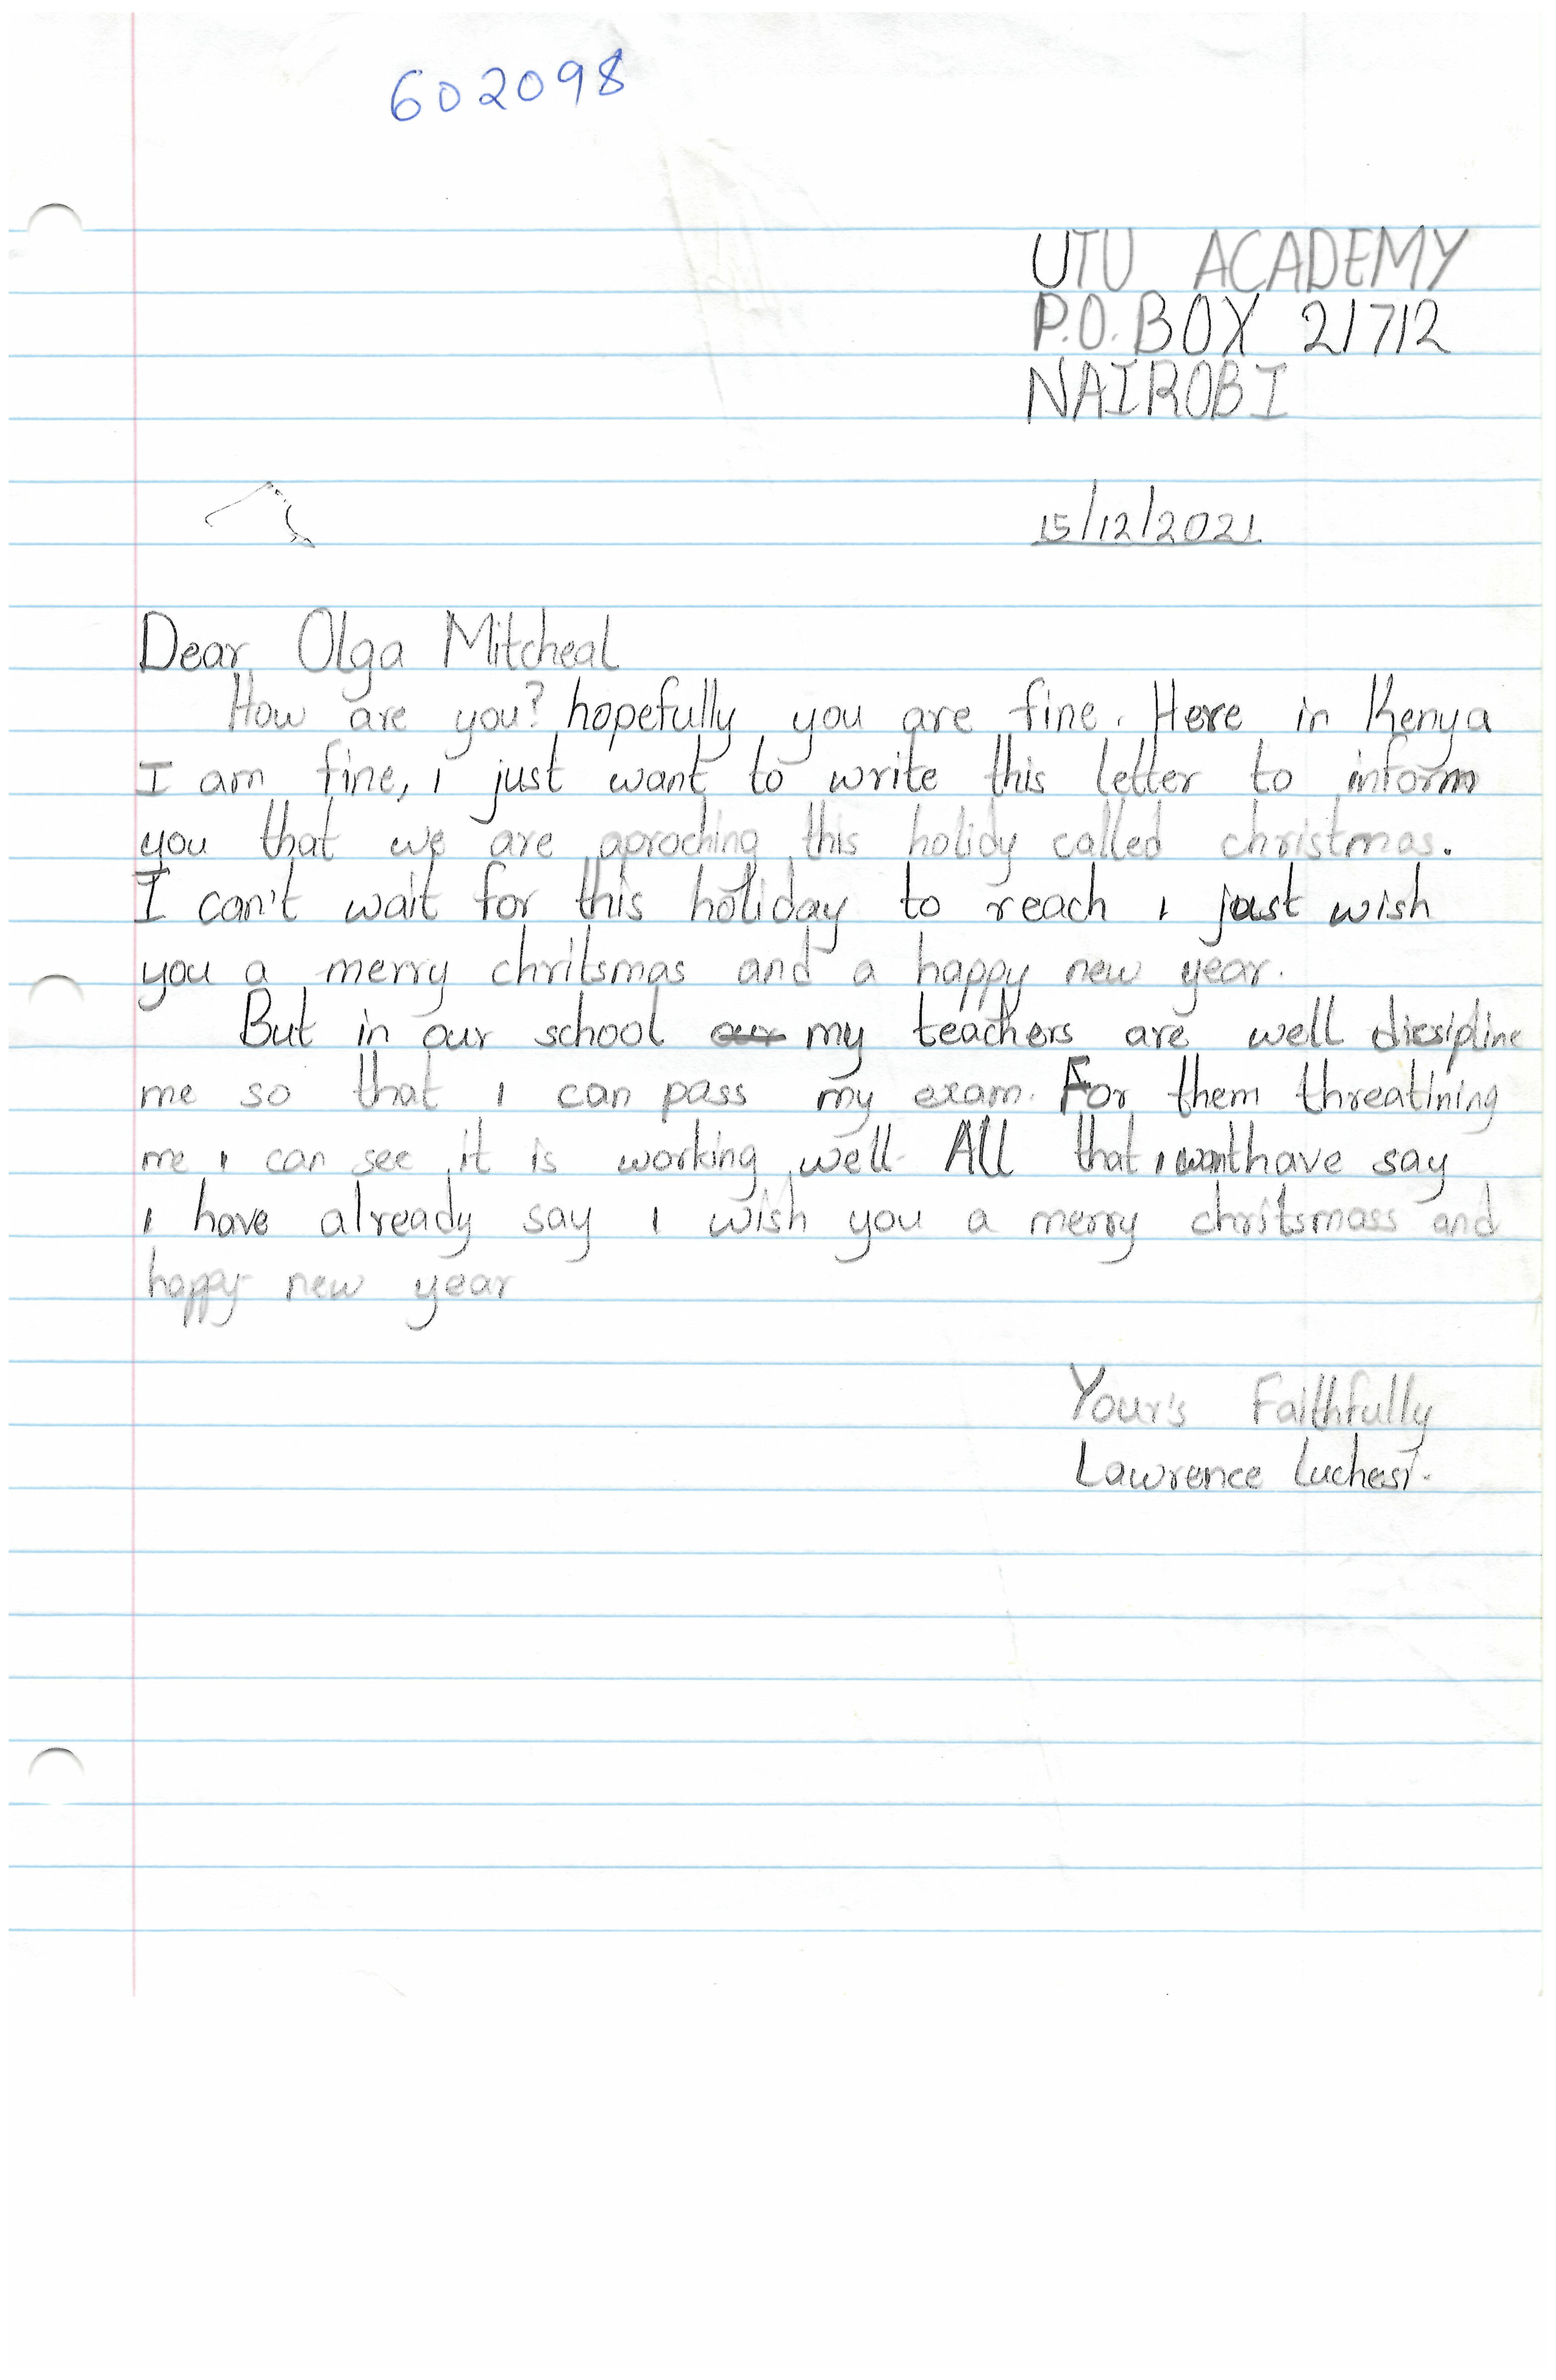 602098
UTU ACADEMY
P.O. BOX 21712
NAIROBI
15/12/2021
Dear Olga Mitcheal
How are you? hopefully you are fine. Here in Kenya
I am fine, i just want to write this letter to inform
you that we are aproching this holidy called christmas.
I can't wait for this holiday to reach i just wish
you a merry chritsmas and a happy new year.
But in our school our my teachers are well dicsipline
me so that i can pass my exam. For them threatining
me i can see it is working well. All that i want have say
i have already say i wish you a merry chritsmass and
happy new year
Your's Faithfully
Lawrence Luchesi.